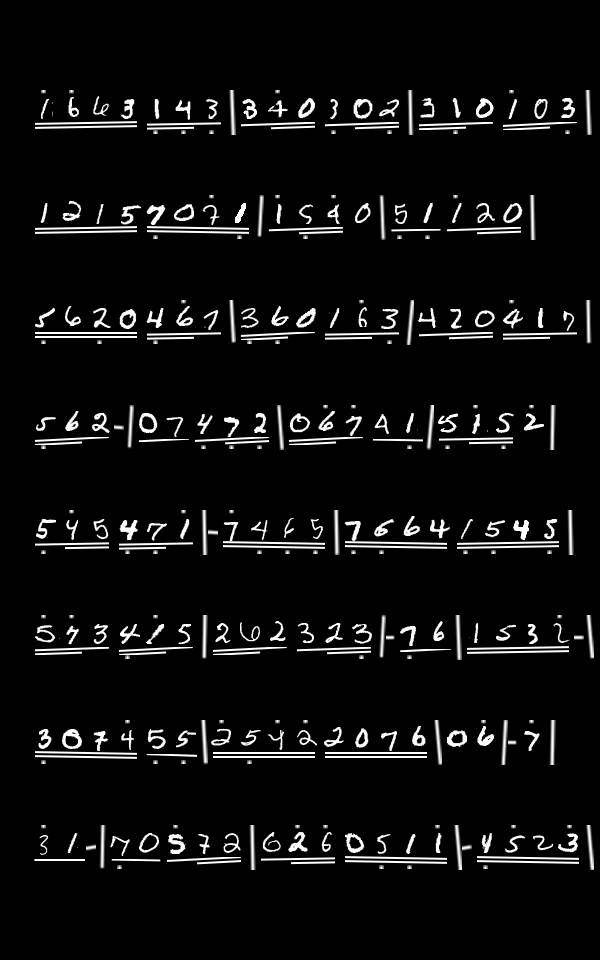 1 6 6 3 1 4 3 | 3 4 0 3 0 2 | 3 1 0 1 0 3 |
1 2 1 5 7 0 7 1 | 1 5 4 0 | 5 1 1 2 0 |
5 6 2 0 4 6 1 | 3 6 0 1 6 3 | 4 2 0 4 1 7 |
5 6 2 - | 0 7 4 7 2 | 0 6 7 4 1 | 5 1 5 2 |
5 4 5 4 7 1 | - 7 4 6 5 | 7 6 6 4 1 5 4 5 |
5 7 3 4 1 5 | 2 6 2 3 2 3 | - 7 6 | 1 5 3 2 - |
3 0 7 4 5 5 | 2 5 4 2 2 0 7 6 | 0 6 | - 7 |
3 1 - | 7 0 5 7 2 | 6 2 6 0 5 1 1 | - 4 5 2 3 |